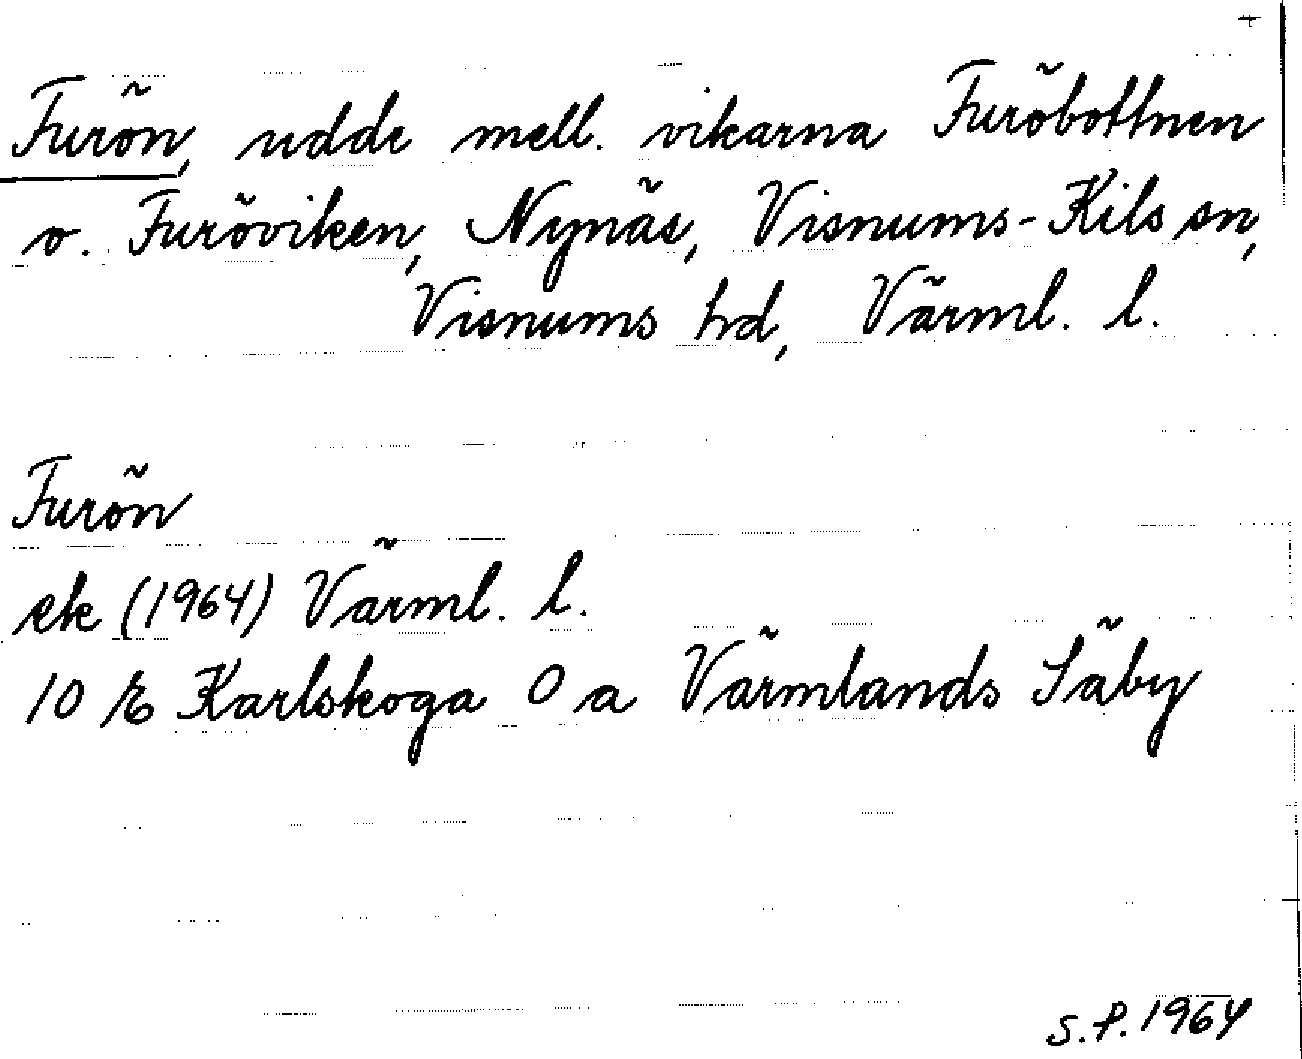 Furön, udde mell. vikarna Furöbottnen
o. Furöviken, Nynäs, Visnums-Kils sn,
Visnums hd, Värml. l.
Furön
ek (1964) Värml. l.
10 E Karlskoga 0 a Värmlands Säby
S.P. 1964